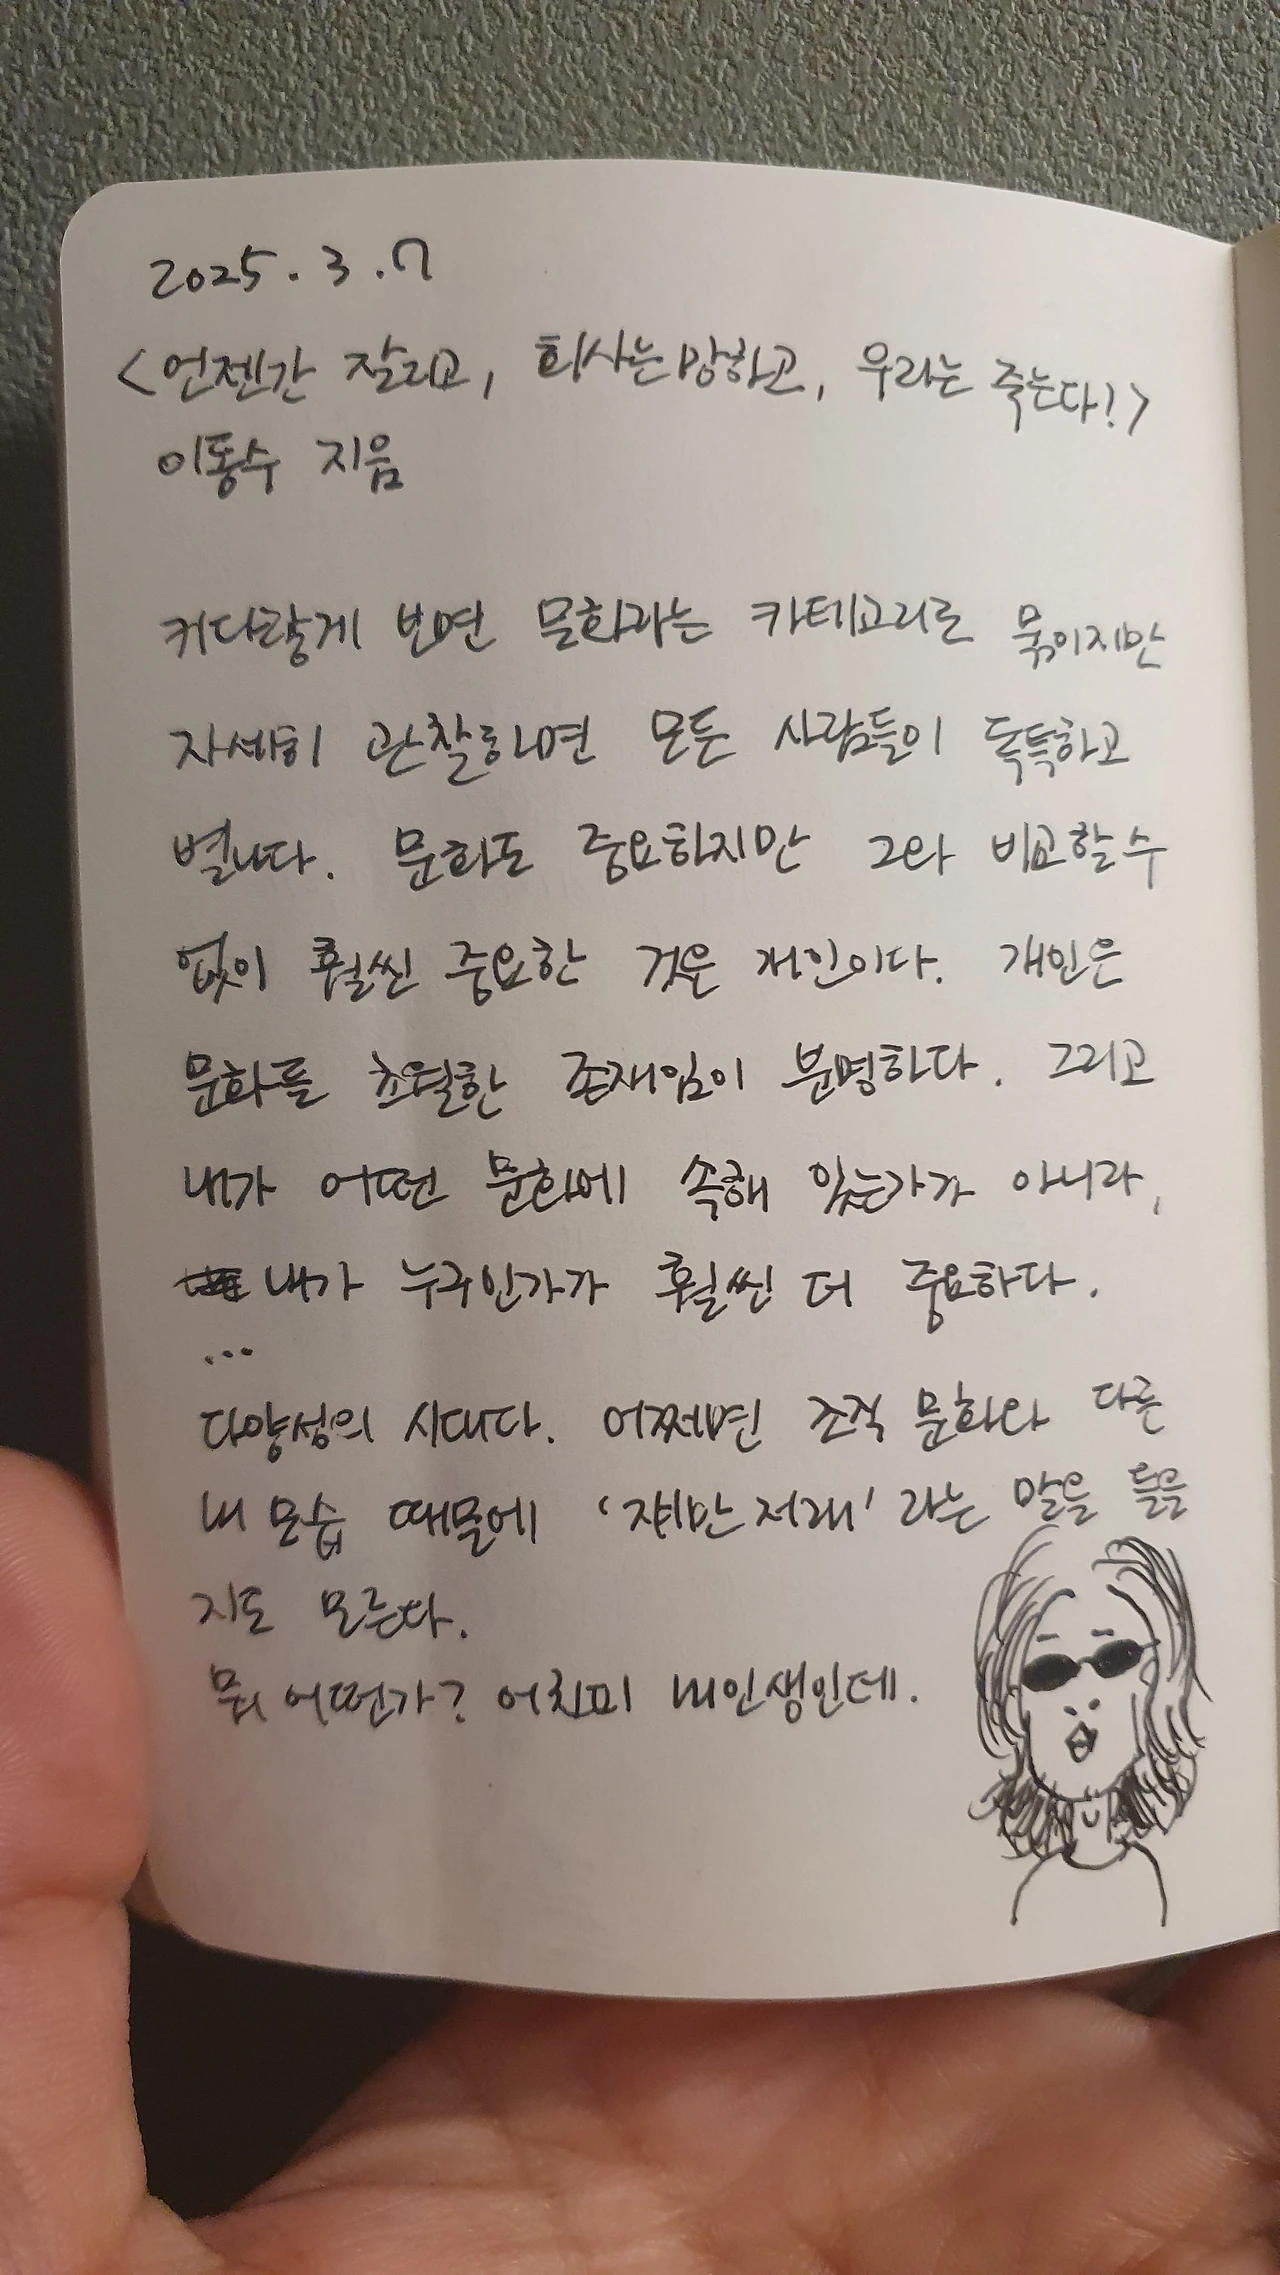 2025. 3. 7
<언젠간 잘리고, 회사는 망하고, 우리는 죽는다!>
이동수 지음
커다랗게 보면 문화라는 카테고리로 묶이지만
자세히 관찰하면 모든 사람들이 독특하고
별나다. 문화도 중요하지만 그와 비교할 수
없이 훨씬 중요한 것은 개인이다. 개인은
문화를 초월한 존재임이 분명하다. 그리고
내가 어떤 문화에 속해 있는가가 아니라,
내가 누구인가가 훨씬 더 중요하다.
...
다양성의 시대다. 어쩌면 조직 문화와 다른
내 모습 때문에 '쟤만 저래' 라는 말을 들을
지도 모른다.
뭐 어떤가? 어차피 내 인생인데.